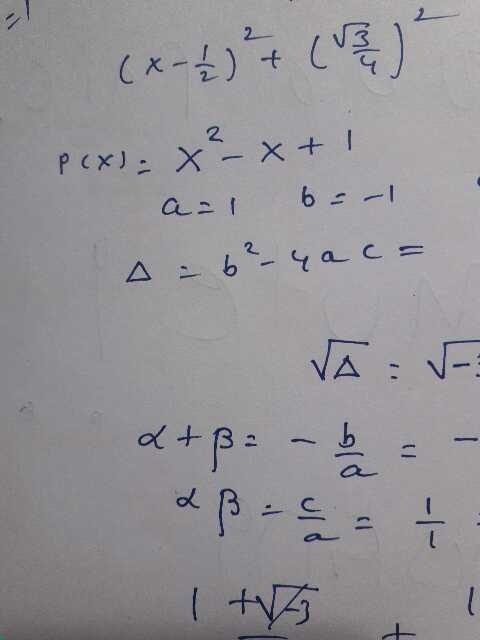 = 1
(x - 1/2)² + (√3/4)²
P(x) = x² - x + 1
a = 1 b = -1
Δ = b² - 4ac =
√Δ = √-3
α + β = - b/a = -
αβ = c/a = 1/1 =
1 + √-3 + 1